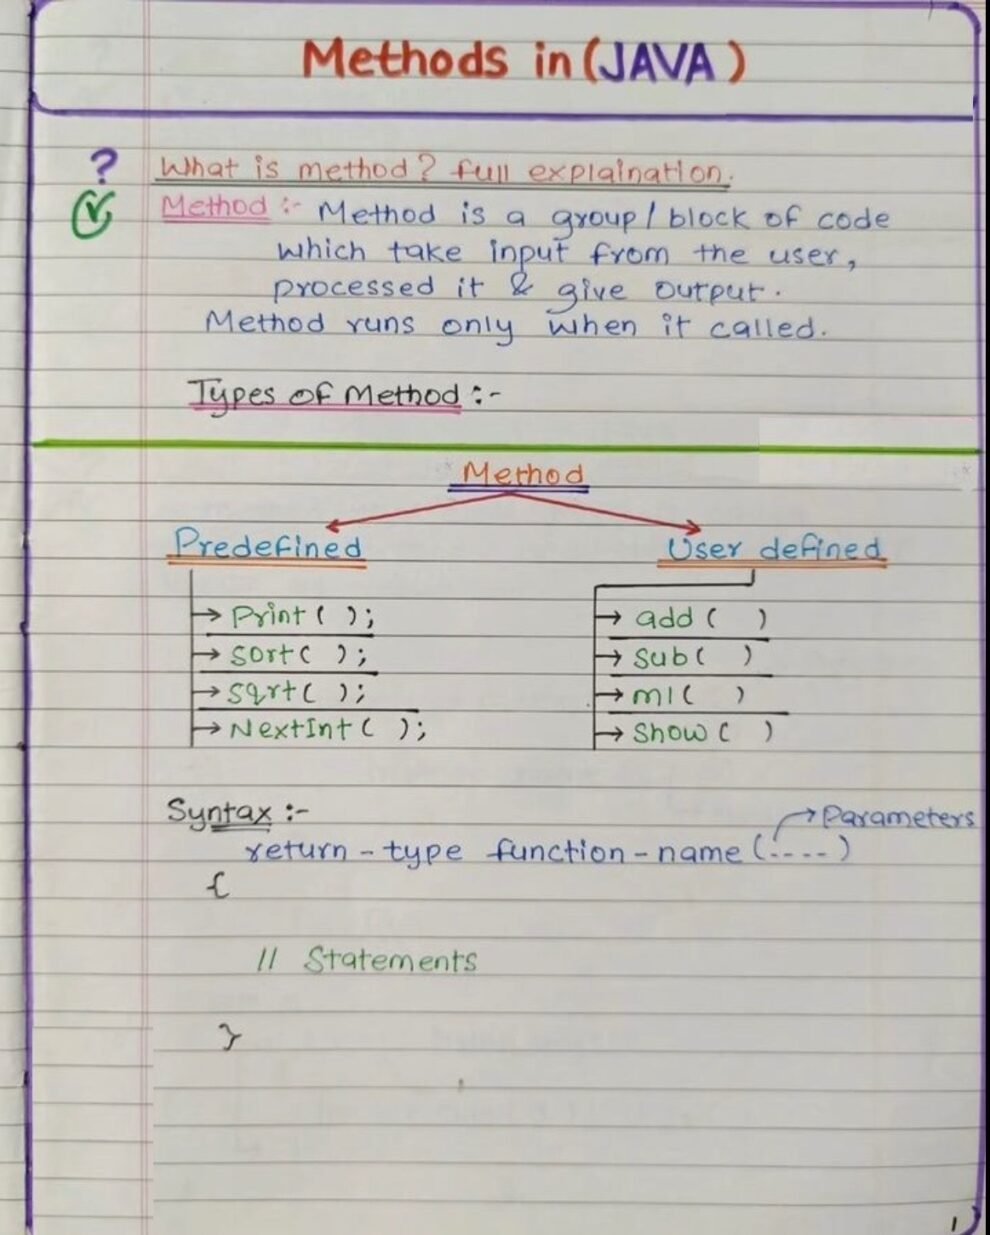 Methods in (JAVA)
? What is method? full explaination.
Method :- Method is a group / block of code
which take input from the user,
processed it & give output.
Method runs only when it called.
Types of Method :-
Method
Predefined
User defined
→ Print ( );
→ add ( )
→ Sort ( );
→ Sub ( )
→ Sqrt ( );
→ ml ( )
→ NextInt ( );
→ Show ( )
Syntax :-
→ Parameters
return - type function - name (....)
{
// Statements
}
1